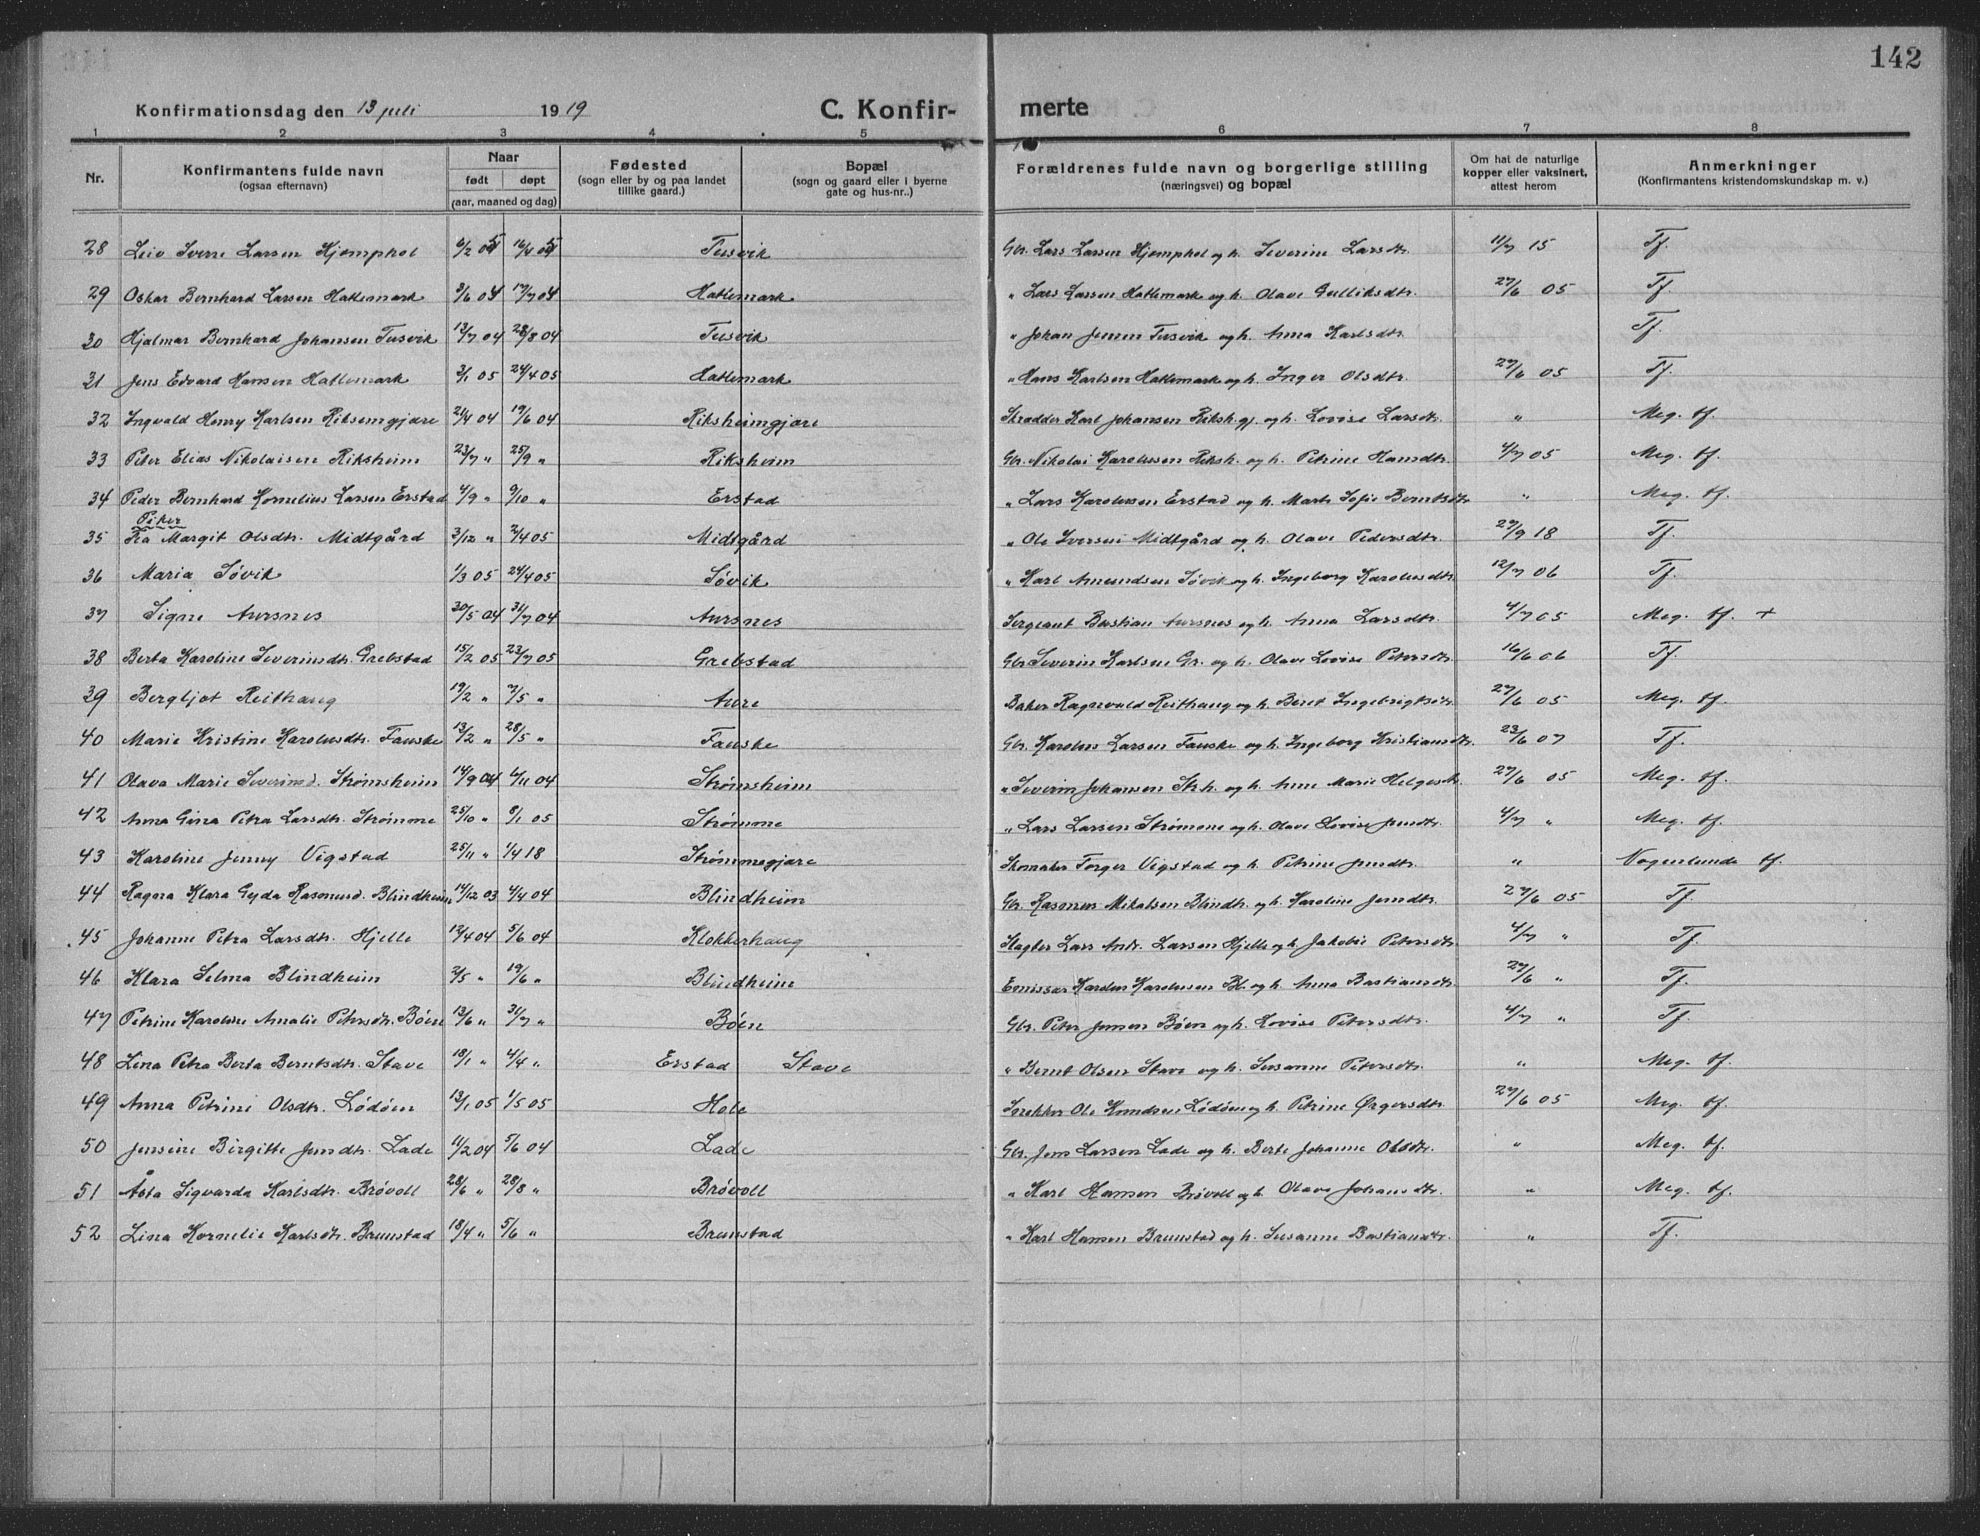 142
Konfirmationsdag den 13 juli 1919 C. Konfirmerte
1 2 3 4 5 6 7 8
Nr. Konfirmantens fulde navn (ogsaa efternavn) Naar født døpt (aar, maaned og dag) Fødested (sogn eller by og paa landet tillike gaard.) Bopæl (sogn og gaard eller i byerne gate og hus-nr..) Forældrenes fulde navn og borgerlige stilling (næringsvei) og bopæl Om hat de naturlige kopper eller vaksinert, attest herom Anmerkninger (Konfirmantens kristendomskundskap m. v.)
28 Leiv Sverre Larsen Hjemphol 6/2 05 16/4 05 Tusvik Gbr. Lars Larsen Hjemphol og h. Severine Larsdtr. 11/7 15 Tf.
29 Oskar Bernhard Larsen Hatlemark 3/6 04 17/7 04 Hatlemark " Lars Larsen Hatlemark og h. Olave Gulliksdtr. 27/6 05 Tf.
30 Hjalmar Bernhard Johansen Tusvik 13/7 04 28/8 04 Tusvik " Johan Jensen Tusvik og h. Anna Karlsdtr. Tf.
31 Jens Edvard Hansen Hatlemark 3/1 05 24/4 05 Hatlemark " Hans Karlsen Hatlemark og h. Inger Olsdtr. 27/6 05 Tf.
32 Ingvald Henry Karlsen Riksemgjære 21/4 04 19/6 04 Riksheimgjære Skrædder Karl Johansen Riksh.gj. og h. Lovise Larsdtr. " Meg. tf.
33 Peter Elias Nikolaisen Riksheim 23/7 " 25/9 " Riksheim Gbr. Nikolai Karolusen Riksh. og h. Petrine Hansdtr. 4/7 05 Meg. tf.
34 Peder Bernhard Kornelius Larsen Erstad 4/9 " 9/10 " Erstad " Lars Karolusen Erstad og h. Marte Sofie Berntsdtr. " Meg. tf.
Piker
35 Pia Margit Olsdtr. Midtgård 3/12 " 2/4 05 Midtgård " Ole Iversen Midtgård og h. Olave Pedersdtr. 27/9 18 Tf.
36 Maria Søvik 1/3 05 24/4 05 Søvik " Karl Amundsen Søvik og h. Ingeborg Karolusdtr. 12/7 06 Tf.
37 Signe Aursnes 30/5 04 31/7 04 Aursnes Sergeant Bastian Aursnes og h. Anna Larsdtr. 4/7 05 Meg. tf. +
38 Berta Karoline Severinsdtr. Grebstad 15/2 05 23/7 05 Grebstad Gbr. Severin Karlsen Gr. og h. Olave Lovise Petersdtr. 16/6 06 Tf.
39 Bergljot Reithaug 19/2 " 7/5 " Aure Baker Ragnvald Reithaug og h. Beret Ingebrigtsdtr. 27/6 05 Meg. tf.
40 Marie Kristine Karolusdtr. Fauske 13/2 " 28/5 " Fauske Gbr. Karolus Larsen Fauske og h. Ingeborg Kristiansdtr. 23/6 07 Tf.
41 Olava Marie Severinsd. Strømsheim 14/9 04 6/11 04 Strømsheim " Severin Johansen Strh. og h. Anne Marie Helgesdtr. 27/6 05 Meg. tf.
42 Anna Gina Petra Larsdtr. Strømme 25/10 " 8/1 05 Strømme " Lars Larsen Strømme og h. Olave Lovise Jensdtr. 4/7 " Meg. tf.
43 Karoline Jenny Vigstad 25/11 " 1/4 18 Strømmegjære Skomaker Torger Vigstad og h. Petrine Jensdtr. " Nogenlunde tf.
44 Ragna Klara Gyda Rasmusd. Blindheim 14/12 03 4/4 04 Blindheim Gbr. Rasmus Mikalsen Blindh. og h. Karoline Jensdtr. 27/6 05 Tf.
45 Johanne Petra Larsdtr. Hjelle 12/4 04 5/6 04 Klokkerhaug Lars Andr. Larsen Hjelle og h. Jakobie Petersdtr. 4/7 " Tf.
46 Klara Selma Blindheim 2/5 " 19/6 " Blindheim Emissær Karolus Karolusen Bl. og h. Anna Bastiansdtr. 27/6 " Tf.
47 Petrine Karoline Amalie Petersdtr. Bøen 13/6 " 31/7 " Bøen Gbr. Peter Jensen Bøen og h. Lovise Petersdtr. 4/7 " Tf.
48 Lina Petra Berta Berntsdtr. Stave 18/1 " 4/4 " Erstad Stave " Bernt Olsen Stave og h. Susanne Petersdtr. " Meg. tf.
49 Anna Petrine Olsdtr. Lødøen 13/1 05 1/5 05 Hole Snekker Ole Knudsen Lødøen og h. Petrine Ørgersdtr. 27/6 05 Meg. tf.
50 Jensine Birgitte Jensdtr. Lade 11/2 04 5/6 04 Lade Gbr. Jens Larsen Lade og h. Berte Johanne Olsdtr. " Meg. tf.
51 Åsta Sigvarda Karlsdtr. Brøvoll 28/6 " 28/8 " Brøvoll " Karl Hansen Brøvoll og h. Olave Johansdtr. " Meg. tf.
52 Lina Kornelie Karlsdtr. Brunstad 18/4 " 5/6 " Brunstad " Karl Hansen Brunstad og h. Susanne Bastiansdtr. " Tf.